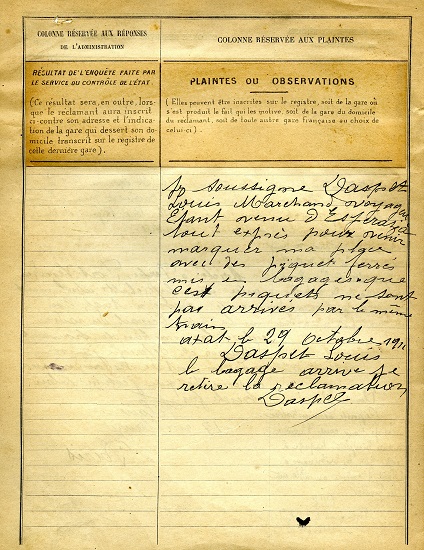 COLONNE RÉSERVÉE AUX RÉPONSES
DE L'ADMINISTRATION
COLONNE RÉSERVÉE AUX PLAINTES
RÉSULTAT DE L'ENQUÊTE FAITE PAR
LE SERVICE DU CONTRÔLE DE L'ÉTAT.
(Ce résultat sera, en outre, lors-
que le réclamant aura inscrit
ci-contre son adresse et l'indica-
tion de la gare qui dessert son do-
micile transcrit sur le registre de
cette dernière gare).
PLAINTES OU OBSERVATIONS
(Elles peuvent être inscrites sur le registre, soit de la gare où
s'est produit le fait qui les motive, soit de la gare du domicile
du réclamant, soit de toute autre gare française au choix de
celui-ci).
Je soussigne Daspet
Louis Marchand voyageur
Etant venu d'Espéraza
tout exprès pour venir
marquer ma place
avec des piquet ferrés
mis en bagages que
cest piquets ne sont
pas arrivés par le même
train
le 29 octobre
Daspet Louis
le bagage arrive je
retire la réclamation
Daspet